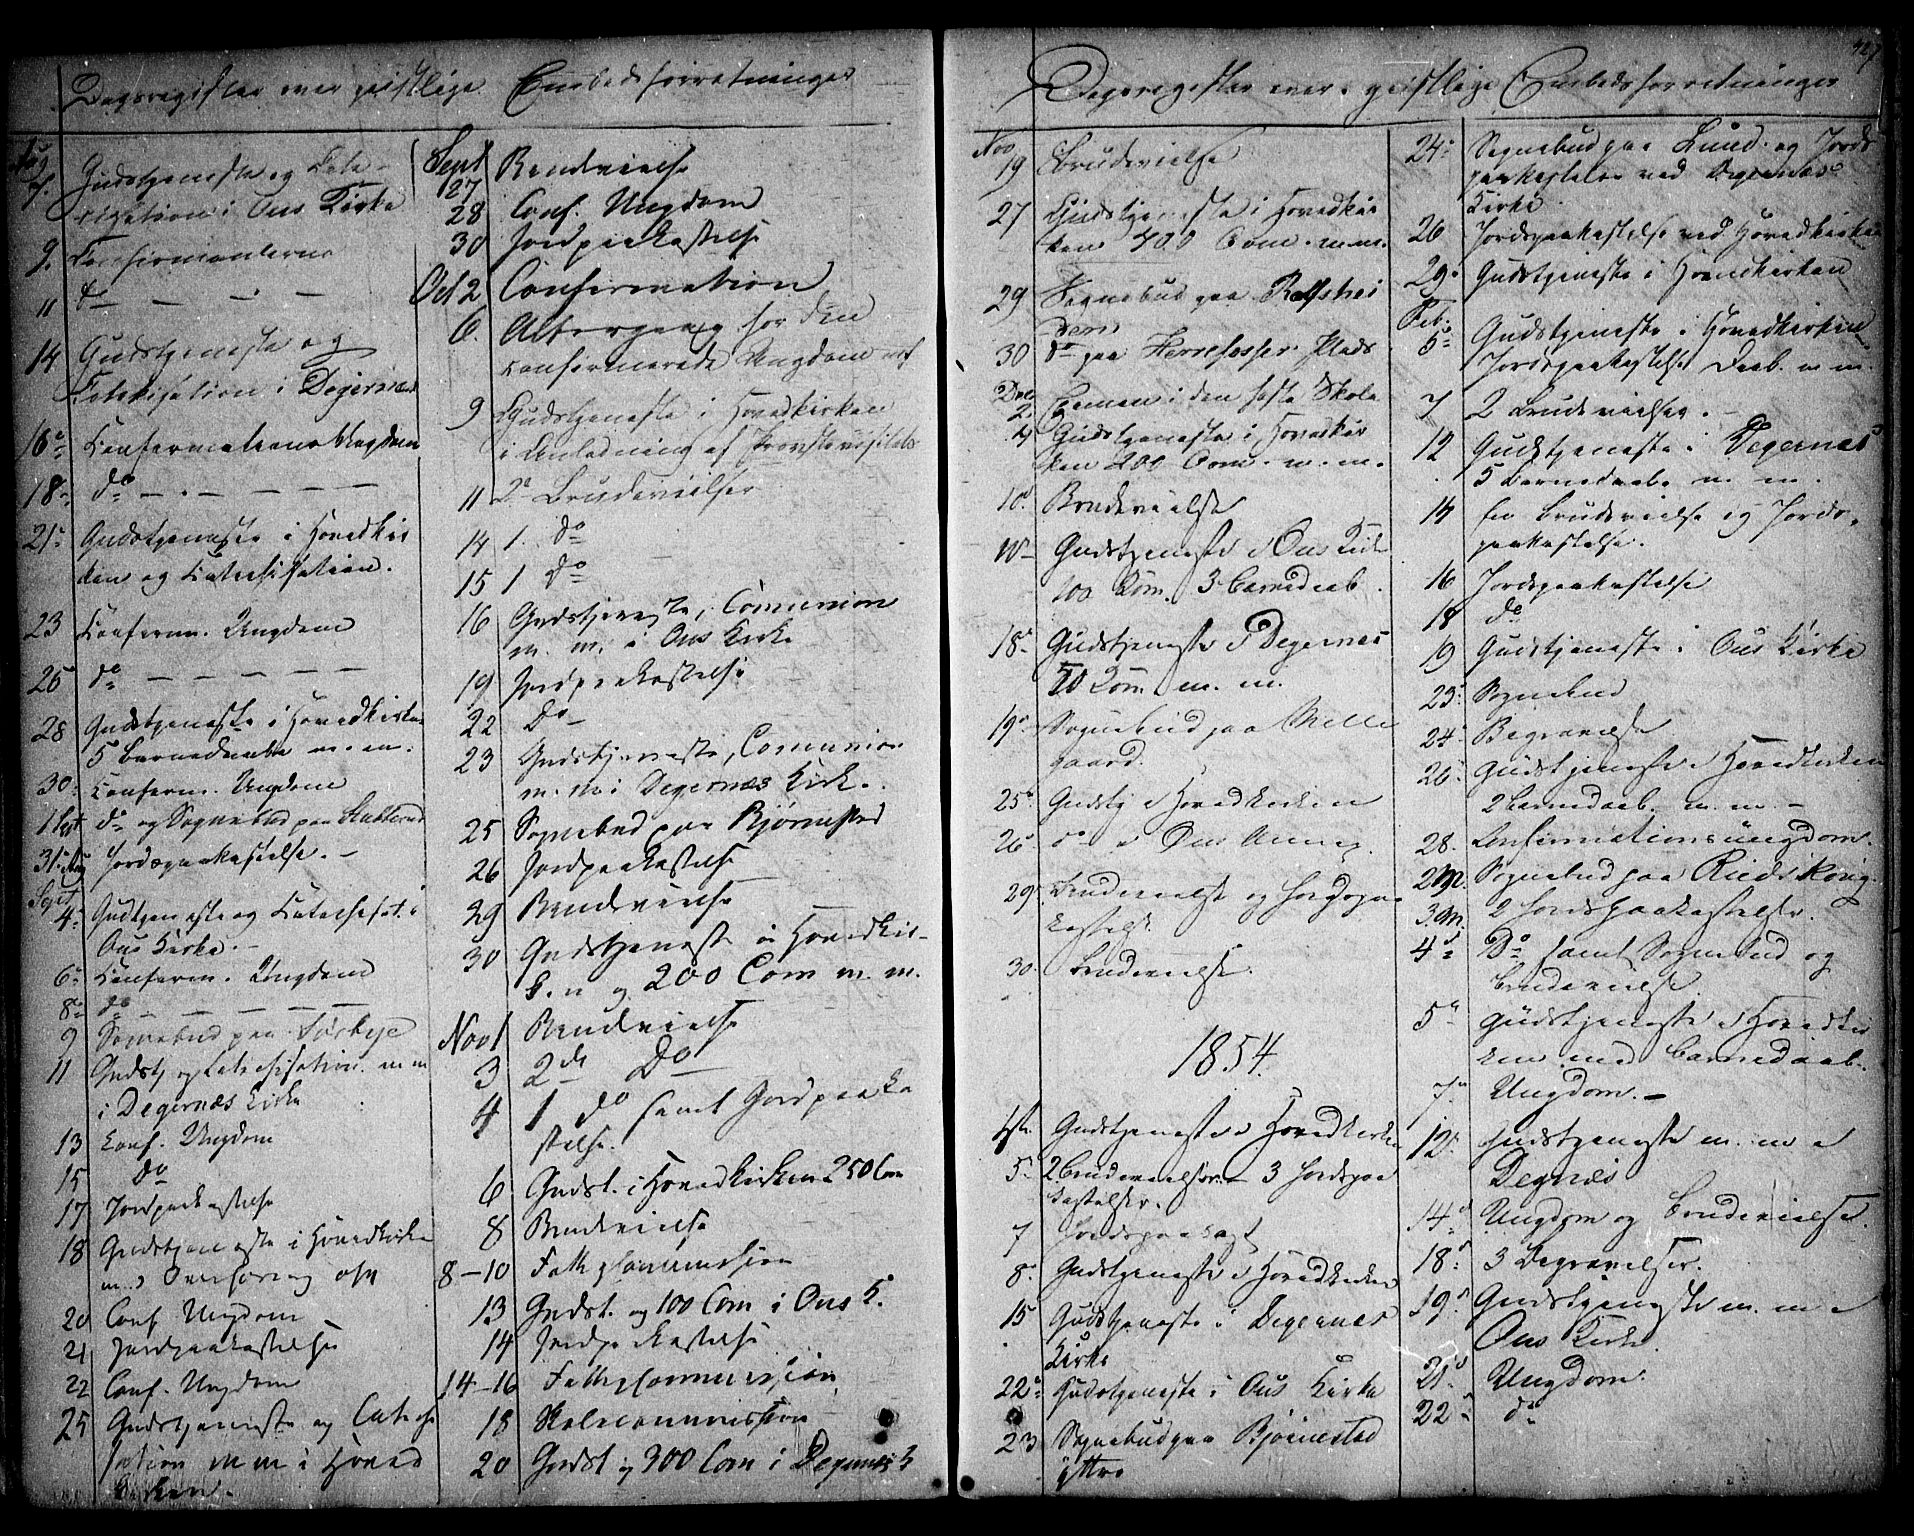 Dagsregister over geistlige Embedsforretninger
Aug
7. Gudstjeneste og Cate-
kisation i Ous Kirke
9. Confirmanterne
11 do — — —
14 Gudstjeneste og
Catekisation i Degernes
16 Confirmations Ungdom
18 do — — —
21 Gudstjeneste i Hovedkir
ken og Catechisation.
23 Conferm. Ungdom
25 do — — — —
28 Gudstjeneste i Hovedkirken
5 Barnedaabe m. m.
30 Conferm. Ungdom
1 Sept do og Sognebud paa
31 Aug Jordspaakastelse. —
Sept
4 Gudtjeneste og Catechisat. i
Ous Kirke. —
6 Conferm. Ungdom
8 do — — — —
9 Sognebud paa
11 Gudstj og Catechisation m m
i Degernæs Kirke
13 Conf. Ungdom
15 do
17 Jordpaakastelse
18 Gudstjeneste i Hovedkirke
m.
20 Conf. Ungdom
21 Jordpaakastelse
22 Conf. Ungdom
25 Gudstjeneste og Cateche
sation m m i Hoved
kirken.
Sept
27 Brudevielse
28 Conf. Ungdom
30 Jordpaakastelse
Oct 2 Confirmation
6. Altergang for den
confirmerede Ungdom
9 Gudstjeneste i Hovedkirken
i Anledning af Provstevisitats
11 2 Brudevielser
14 1. do
15 1 do
16 Gudstjeneste, Comunion
m. m. i Ous Kirke
19 Jordpaakastelse
22 Do
23 Gudstjeneste, Comunion
m. m i Degernæs Kirke.
25 Sognebud paa Bjørnestad
26 Jordpaakastelse
29 Brudevielse
30 Gudstjeneste i Hovedkir-
ken og 200 Com m. m.
Nov 1 Brudevielse
3 2de Do
4 1 do samt Jordpaaka
stelse.
6 Gudst. i Hovedkirken 250 Com
8 Brudevielse
8-10 Fattigcommission
13 Gudst. og 100 Com i Ous K.
14 Jordpaakastelse
14-16 Fattigcommission
18 Skolecommission
20 Gudst og 300 Com i Degernæs K
Dagsregister over geistlige Embedsforretninger
Nov
19 Brudevielse
27 Gudstjeneste i Hovedkir
ken 400 Com. m.m.
29 Sognebud paa
30 do paa Plads
Dec
2. Examen i den faste Skole
4 Gudstjeneste i Hovedkir
ken 200 Com. m. m.
10 Brudevielse
Gudstjeneste i Ous Kirke
100 Com. 3 Barnedaab.
18 Gudstjeneste i Degernes
50 Com. m. m.
19 Sognebud paa Melle
gaard.
25 Gudstj i Hovedkirken
26 do i Ous
29 Brudevielse og Jordspaa
kastelse.
30. Brudevielse.
1854.
Gudstjeneste i Hovedkirken
5. 2 Brudevielser — 3 Jordspaa
kastelser.
7
8. Gudstjeneste i Hovedkirken
15 Gudstjeneste i Degernes
Kirke
22 Gudstjeneste i Ous Kirke
23 Sognebud paa Bjørnestad
yttre
24 Sognebud paa Lund. og Jords
paakastelse ved Degernæs
Kirke.
26 Jordspaakastelse ved Hovedkirken
29 Gudstjeneste i Hovedkirken
Feb.
5 Gudstjeneste i Hovedkirken
Jordspaakastelse Daab. m m.
7 2 Brudevielser. —
12 Gudstjeneste i Degernæs
5 Barnedaabe m. m.
14 En Brudevielse og Jords-
paakastelse.
16 Jordspaakastelse
18 do
19 Gudstjeneste i Ous Kirke
23 Sognebud
24 Begravelse
26 Gudstjeneste i Hovedkirken
2 Barnedaab. m. m. —
28. Confirmationsungdom.
2 M. Sognebud paa
3. M. 2 Jordspaakastelser.
4 Do samt Sognebud og
Brudevielse.
5 Gudstjeneste i Hovedkir
ken med Barnedaab.
7. Ungdom. —
12 Gudstjeneste m. m i
Degnæs
14 Ungdom og Brudevielse.
18 3 Begravelser.
19 Gudstjeneste m. m i
Ous Kirke.
21 Ungdom.
22 do